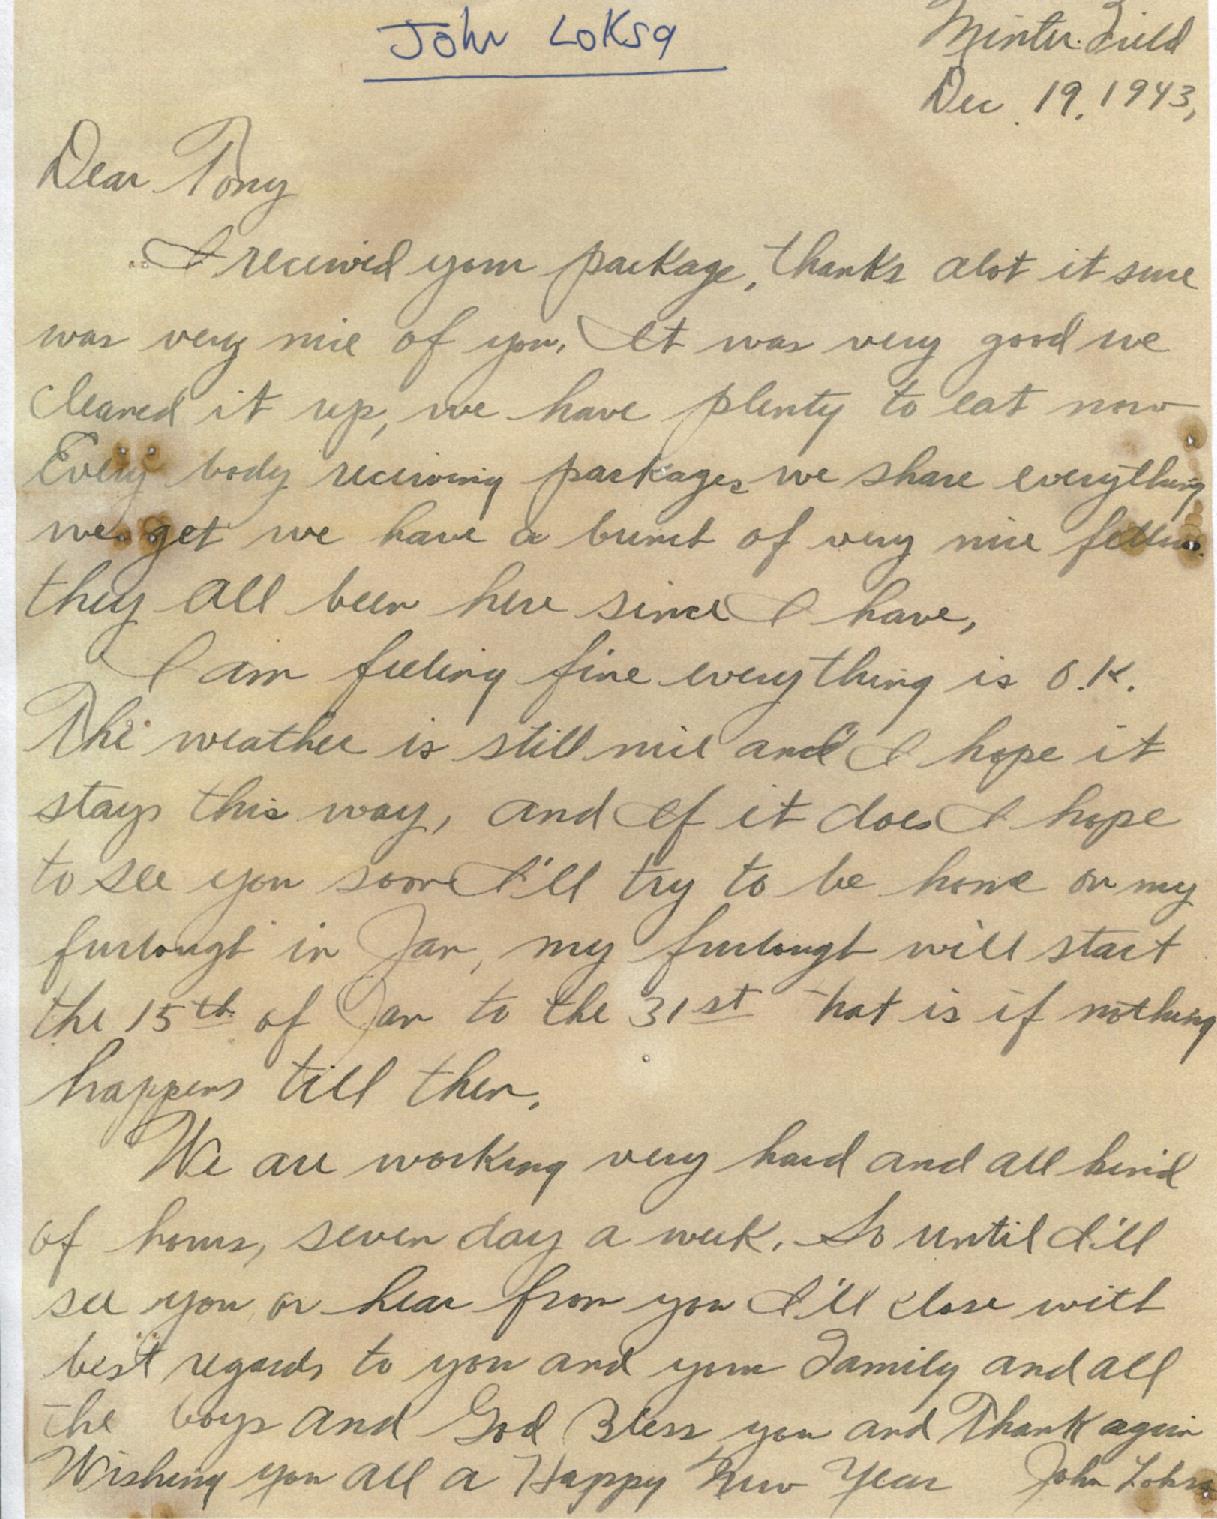 John Loksa
Minter Field
Dec. 19, 1943,
Dear Tony
I received your package, thanks alot it sure
was very nice of you. It was very good we
cleaned it up, we have plenty to eat now
Every body receiving packages we share everything
we get we have a bunch of very nice fellows
they all been here since I have,
I am feeling fine everything is O.K.
The weather is still nice and I hope it
stays this way, and If it does I hope
to see you soon I'll try to be home on my
furlought in Jan, my furlought will start
the 15th of Jan to the 31st that is if nothing
happens till then.
We are working very hard and all kind
of hours, seven day a week. So until I'll
see you or hear from you I'll close with
best regards to you and your Family and all
the boys and God Bless you and Thank again
Wishing you all a Happy New Year John Loksa